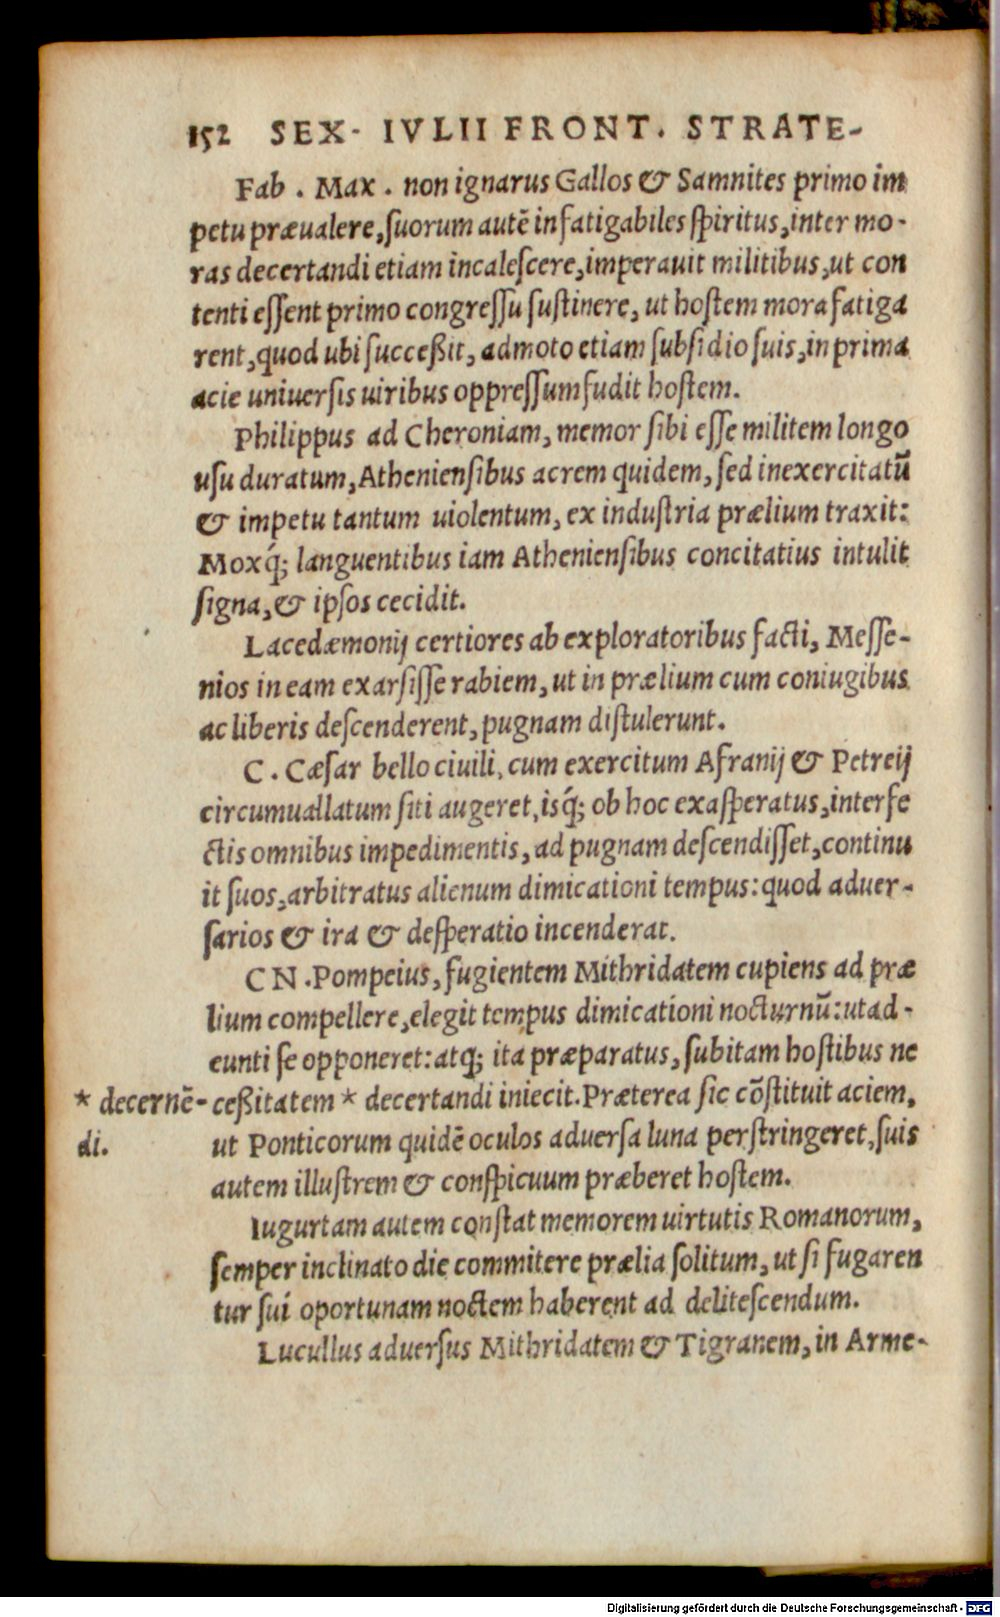 152 SEX- IVLII FRONT. STRATE-
Fab. Max. non ignarus Gallos & Samnites primo im
petu præualere, ſuorum autē infatigabiles ſpiritus, inter mo-
ras decertandi etiam incaleſcere, imperauit militibus, ut con
tenti eſſent primo congreſſu ſuſtinere, ut hoſtem mora fatiga
rent, quod ubi ſucceßit, admoto etiam ſubſidio ſuis, in prima
acie uniuerſis uiribus oppreſſum fudit hoſtem.
Philippus ad Cheroniam, memor ſibi eſſe militem longo
uſu duratum, Athenienſibus acrem quidem, ſed inexercitatū
& impetu tantum uiolentum, ex induſtria prælium traxit:
Moxq́; languentibus iam Athenienſibus concitatius intulit
ſigna, & ipſos cecidit.
Lacedæmonij certiores ab exploratoribus facti, Meſſe-
nios in eam exarſiſſe rabiem, ut in prælium cum coniugibus
ac liberis deſcenderent, pugnam diſtulerunt.
C. Cæſar bello ciuili, cum exercitum Afranij & Petreij
circumuallatum ſiti augeret, isq́; ob hoc exaſperatus, interfe
ctis omnibus impedimentis, ad pugnam deſcendiſſet, continu
it ſuos, arbitratus alienum dimicationi tempus: quod aduer-
ſarios & ira & deſperatio incenderat.
CN. Pompeius, fugientem Mithridatem cupiens ad præ
lium compellere, elegit tempus dimicationi nocturnū: ut ad-
eunti ſe opponeret: atq; ita præparatus, ſubitam hoſtibus ne
* decernē- ceßitatem * decertandi iniecit. Præterea ſic cōſtituit aciem,
di. ut Ponticorum quidē oculos aduerſa luna perſtringeret, ſuis
autem illuſtrem & conſpicuum præberet hoſtem.
Iugurtam autem conſtat memorem uirtutis Romanorum,
ſemper inclinato die commitere prælia ſolitum, ut ſi fugaren
tur ſui oportunam noctem haberent ad deliteſcendum.
Lucullus aduerſus Mithridatem & Tigranem, in Arme-
Digitalisierung gefördert durch die Deutsche Forschungsgemeinschaft - DFG